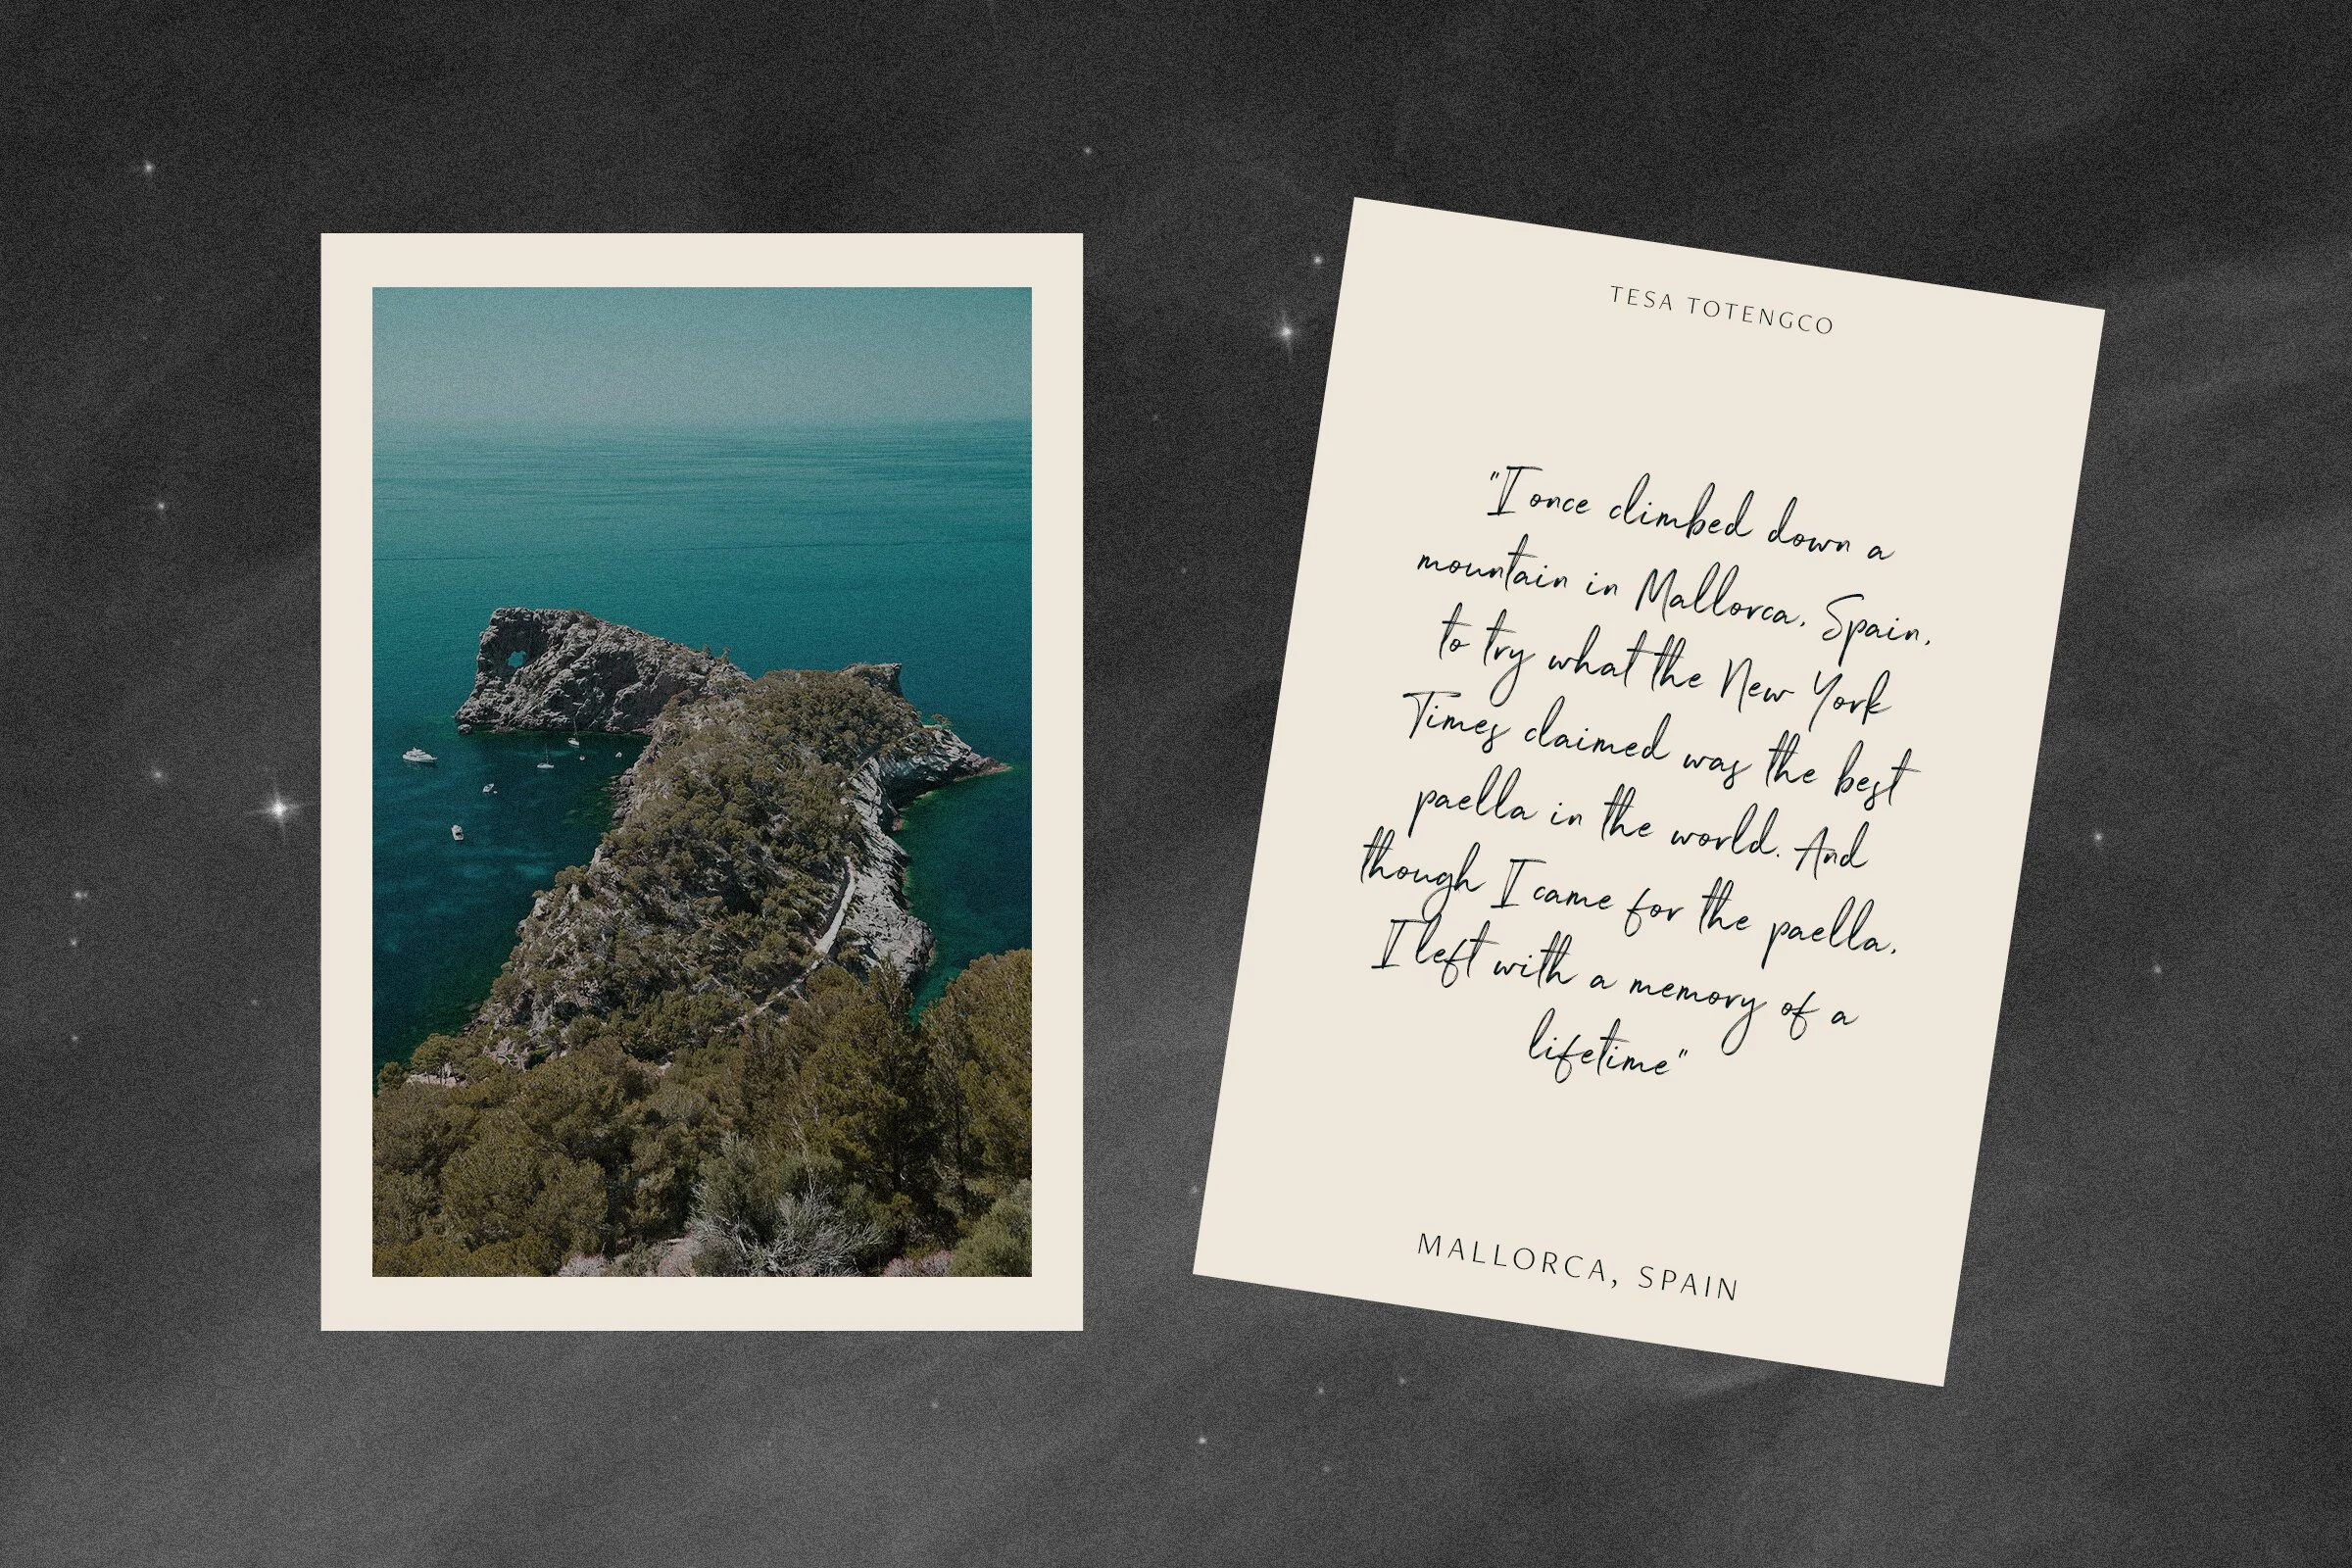 TESA TOTENGCO
"I once climbed down a
mountain in Mallorca, Spain,
to try what the New York
Times claimed was the best
paella in the world. And
though I came for the paella,
I left with a memory of a
lifetime"
MALLORCA, SPAIN